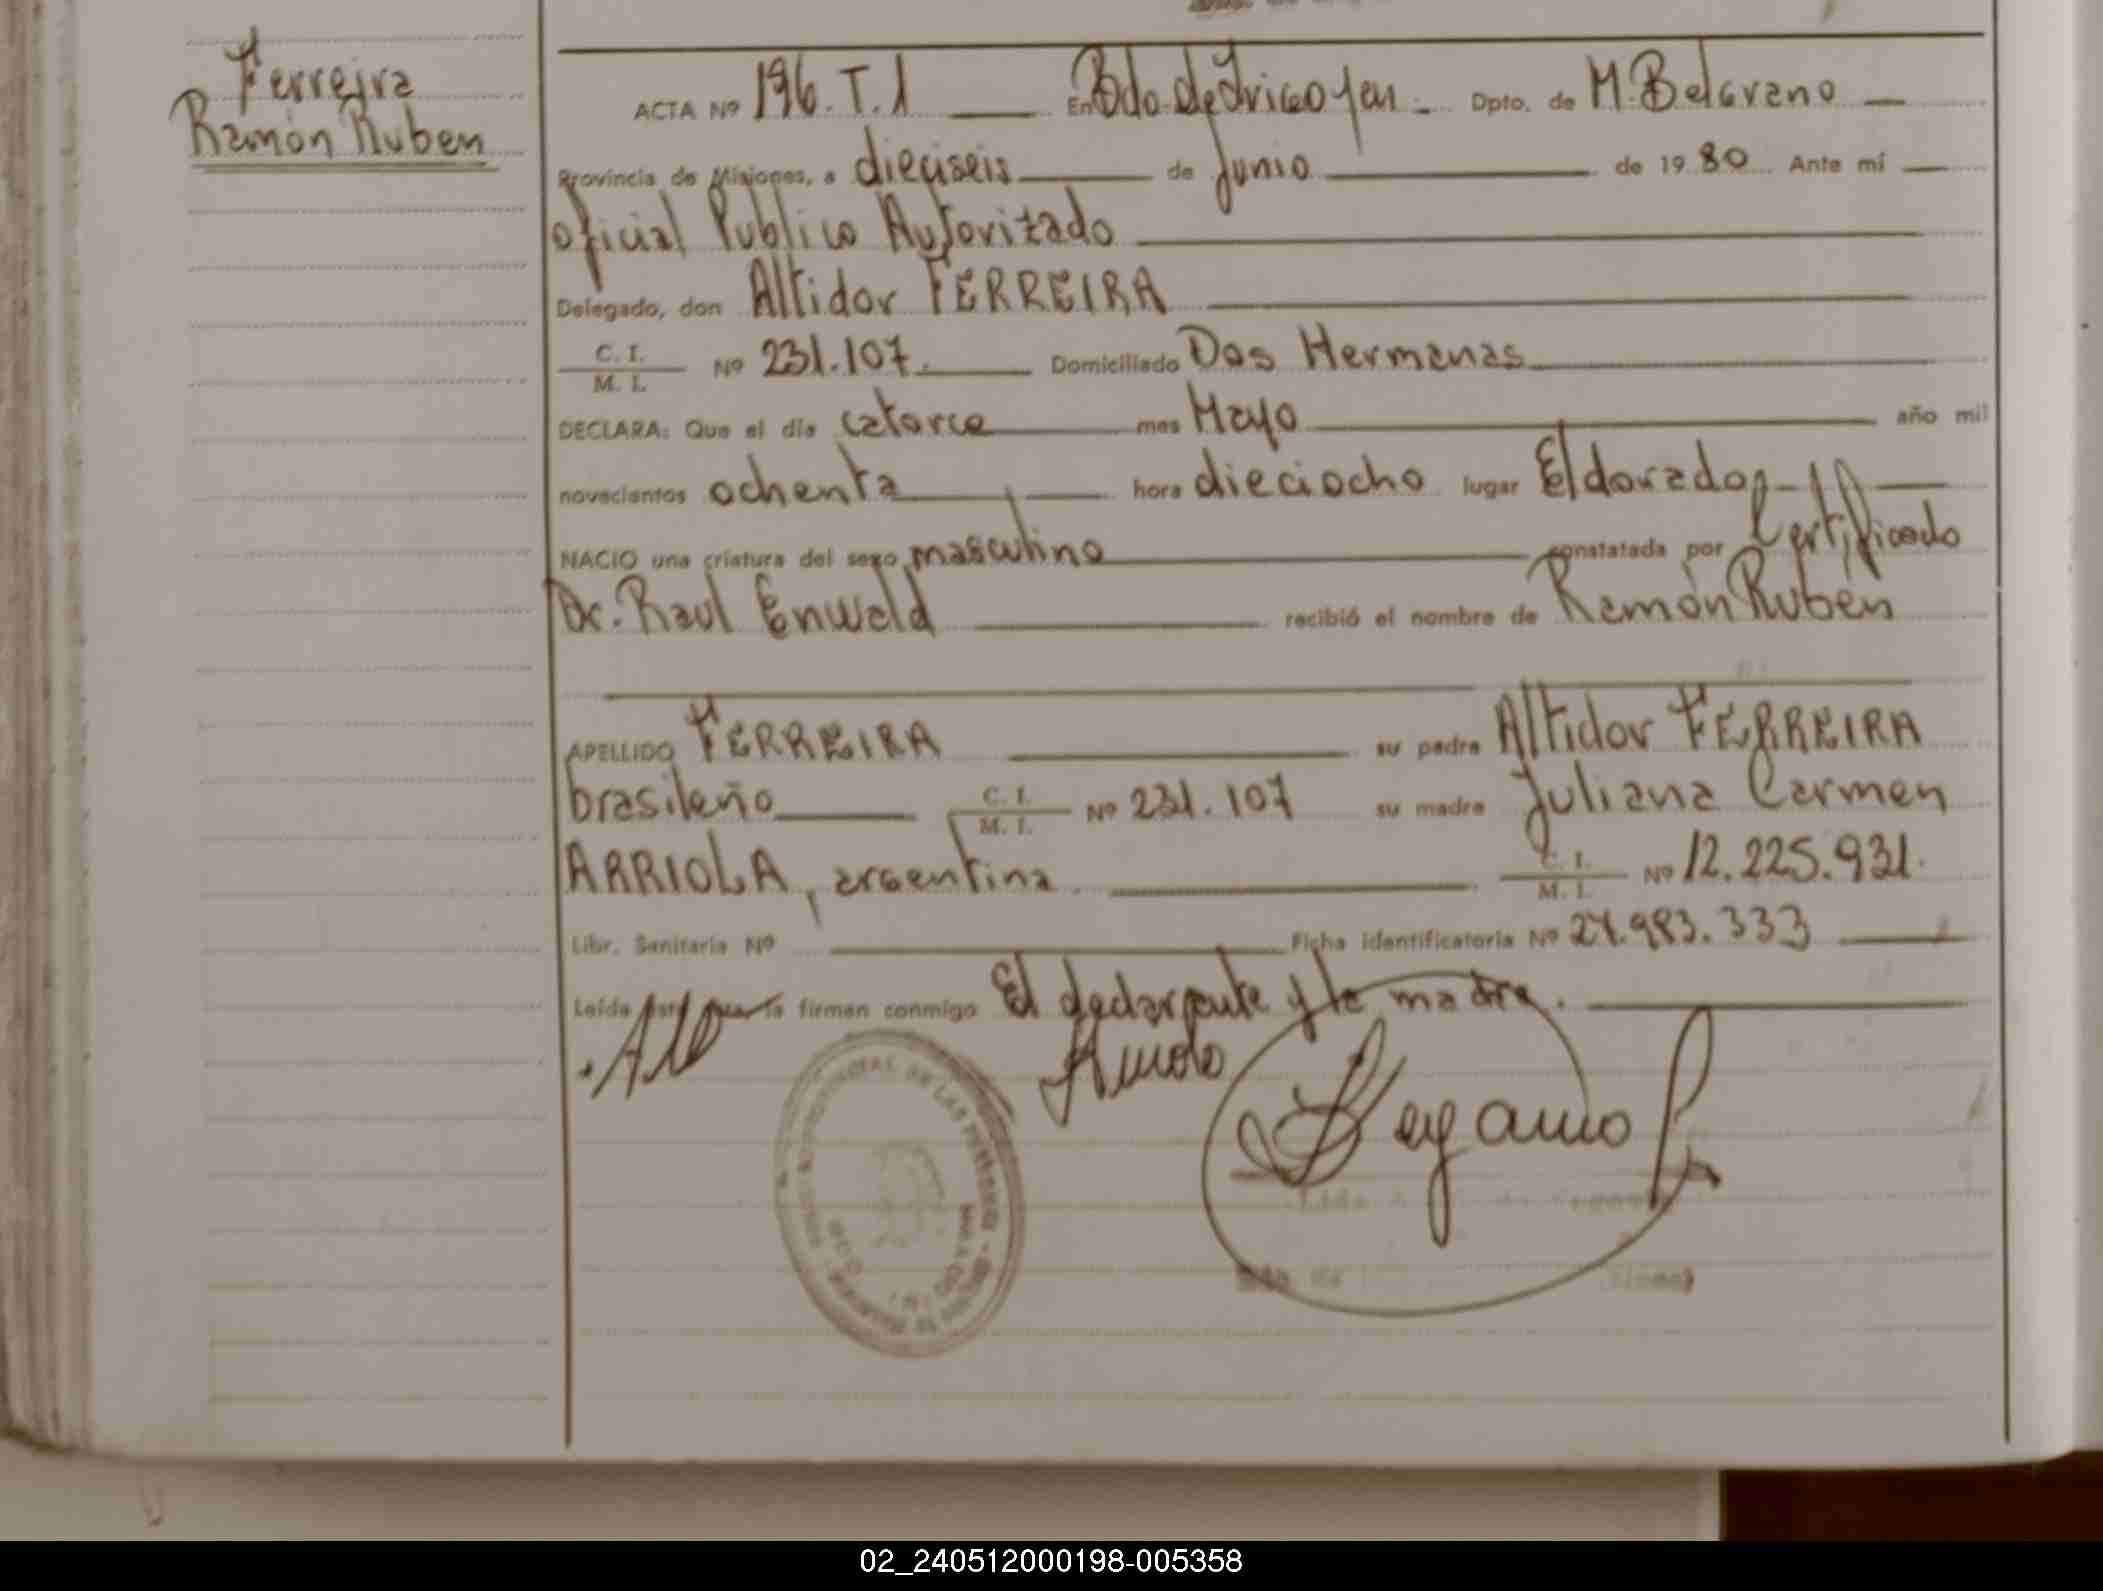 Ferreira
Ramón Ruben
ACTA Nº 196. T. 1 En Bdo. de Irigoyen Dpto. de M. Belgrano
Provincia de Misiones, a dieciseis de Junio de 1980 Ante mí
oficial Publico Autorizado
Delegado, don Altidor FERREIRA
C. I.
M. I. Nº 231.107. Domiciliado Dos Hermanas
DECLARA: Que el día catorce mes Mayo año mil
novecientos ochenta, hora dieciocho lugar Eldorado
NACIO una criatura del sexo masculino constatada por Certificado
Dr. Raul Enwald recibió el nombre de Ramón Ruben
APELLIDO FERREIRA su padre Altidor FERREIRA
brasileño C. I.
M. I. Nº 231.107 su madre Juliana Carmen
ARRIOLA, argentina C. I.
M. I. Nº 12.225.931.
Libr. Sanitaria Nº Ficha identificatoria Nº 27.983.333
Leída esta acta la firman conmigo El declarante y la madre.
02_240512000198-005358